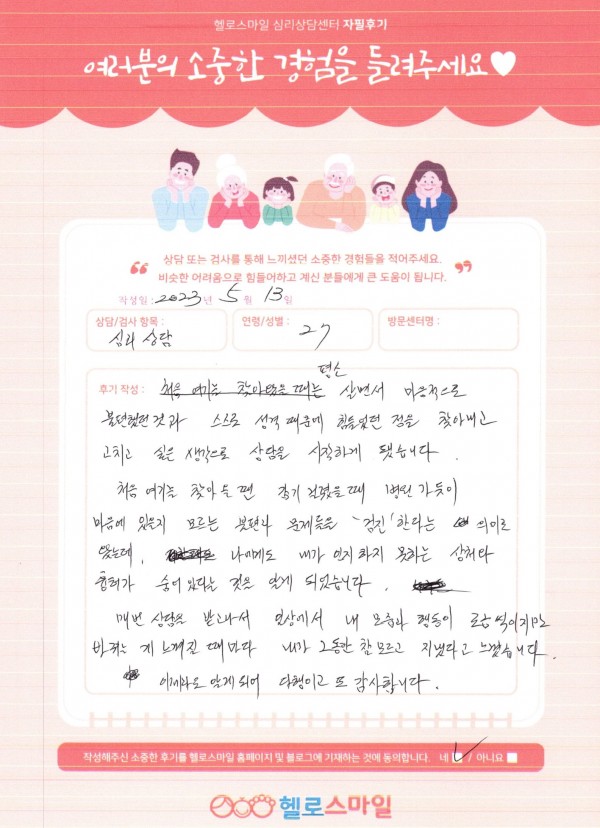 헬로스마일 심리상담센터 자필후기
여러분의 소중한 경험을 들려주세요♥
상담 또는 검사를 통해 느끼셨던 소중한 경험들을 적어주세요.
비슷한 어려움으로 힘들어하고 계신 분들에게 큰 도움이 됩니다.
작성일 : 2023년 5월 13일
상담/검사 항목 : 연령/성별 : 방문센터명 :
심리 상담 27
평소
후기 작성 : 처음 여기를 찾아왔을 때는 살면서 마음적으로
불편했던 것과 스스로 성격 때문에 힘들었던 점을 찾아내고
고치고 싶은 생각으로 상담을 시작하게 됐습니다.
처음 여기를 찾아올 땐 감기 걸렸을때 병원 가듯이
마음에 있을지 모르는 불편과 문제들을 '검진'한다는 의미로
왔는데, 나에게도 내가 인지하지 못하는 상처나
흉터가 숨어 있다는 것을 알게 되었습니다.
매번 상담을 받고나서 일상에서 내 모습과 행동이 조금씩이지만
바뀌는 게 느껴질 때마다 내가 그동안 참 모르고 지냈다고 느꼈습니다.
이제라도 알게 되어 다행이고 또 감사합니다.
작성해주신 소중한 후기를 헬로스마일 홈페이지 및 블로그에 기재하는 것에 동의합니다. 네 / 아니요
헬로스마일